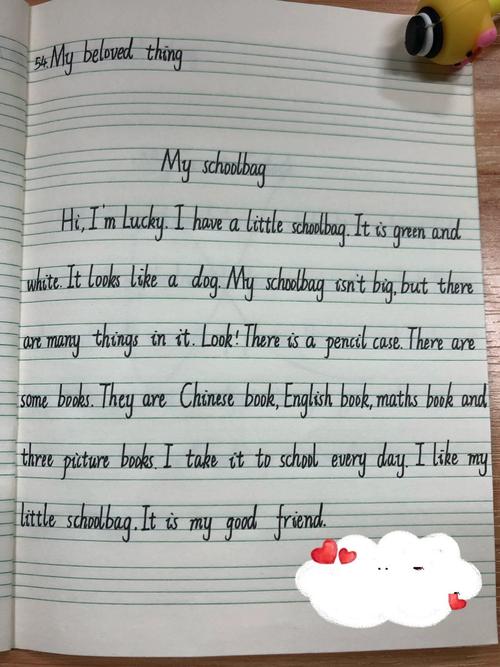 54. My beloved thing
My schoolbag
Hi, I'm Lucky. I have a little schoolbag. It is green and
white. It looks like a dog. My schoolbag isn't big, but there
are many things in it. Look! There is a pencil case. There are
some books. They are Chinese book, English book, maths book and
three picture books. I take it to school every day. I like my
little schoolbag. It is my good friend.